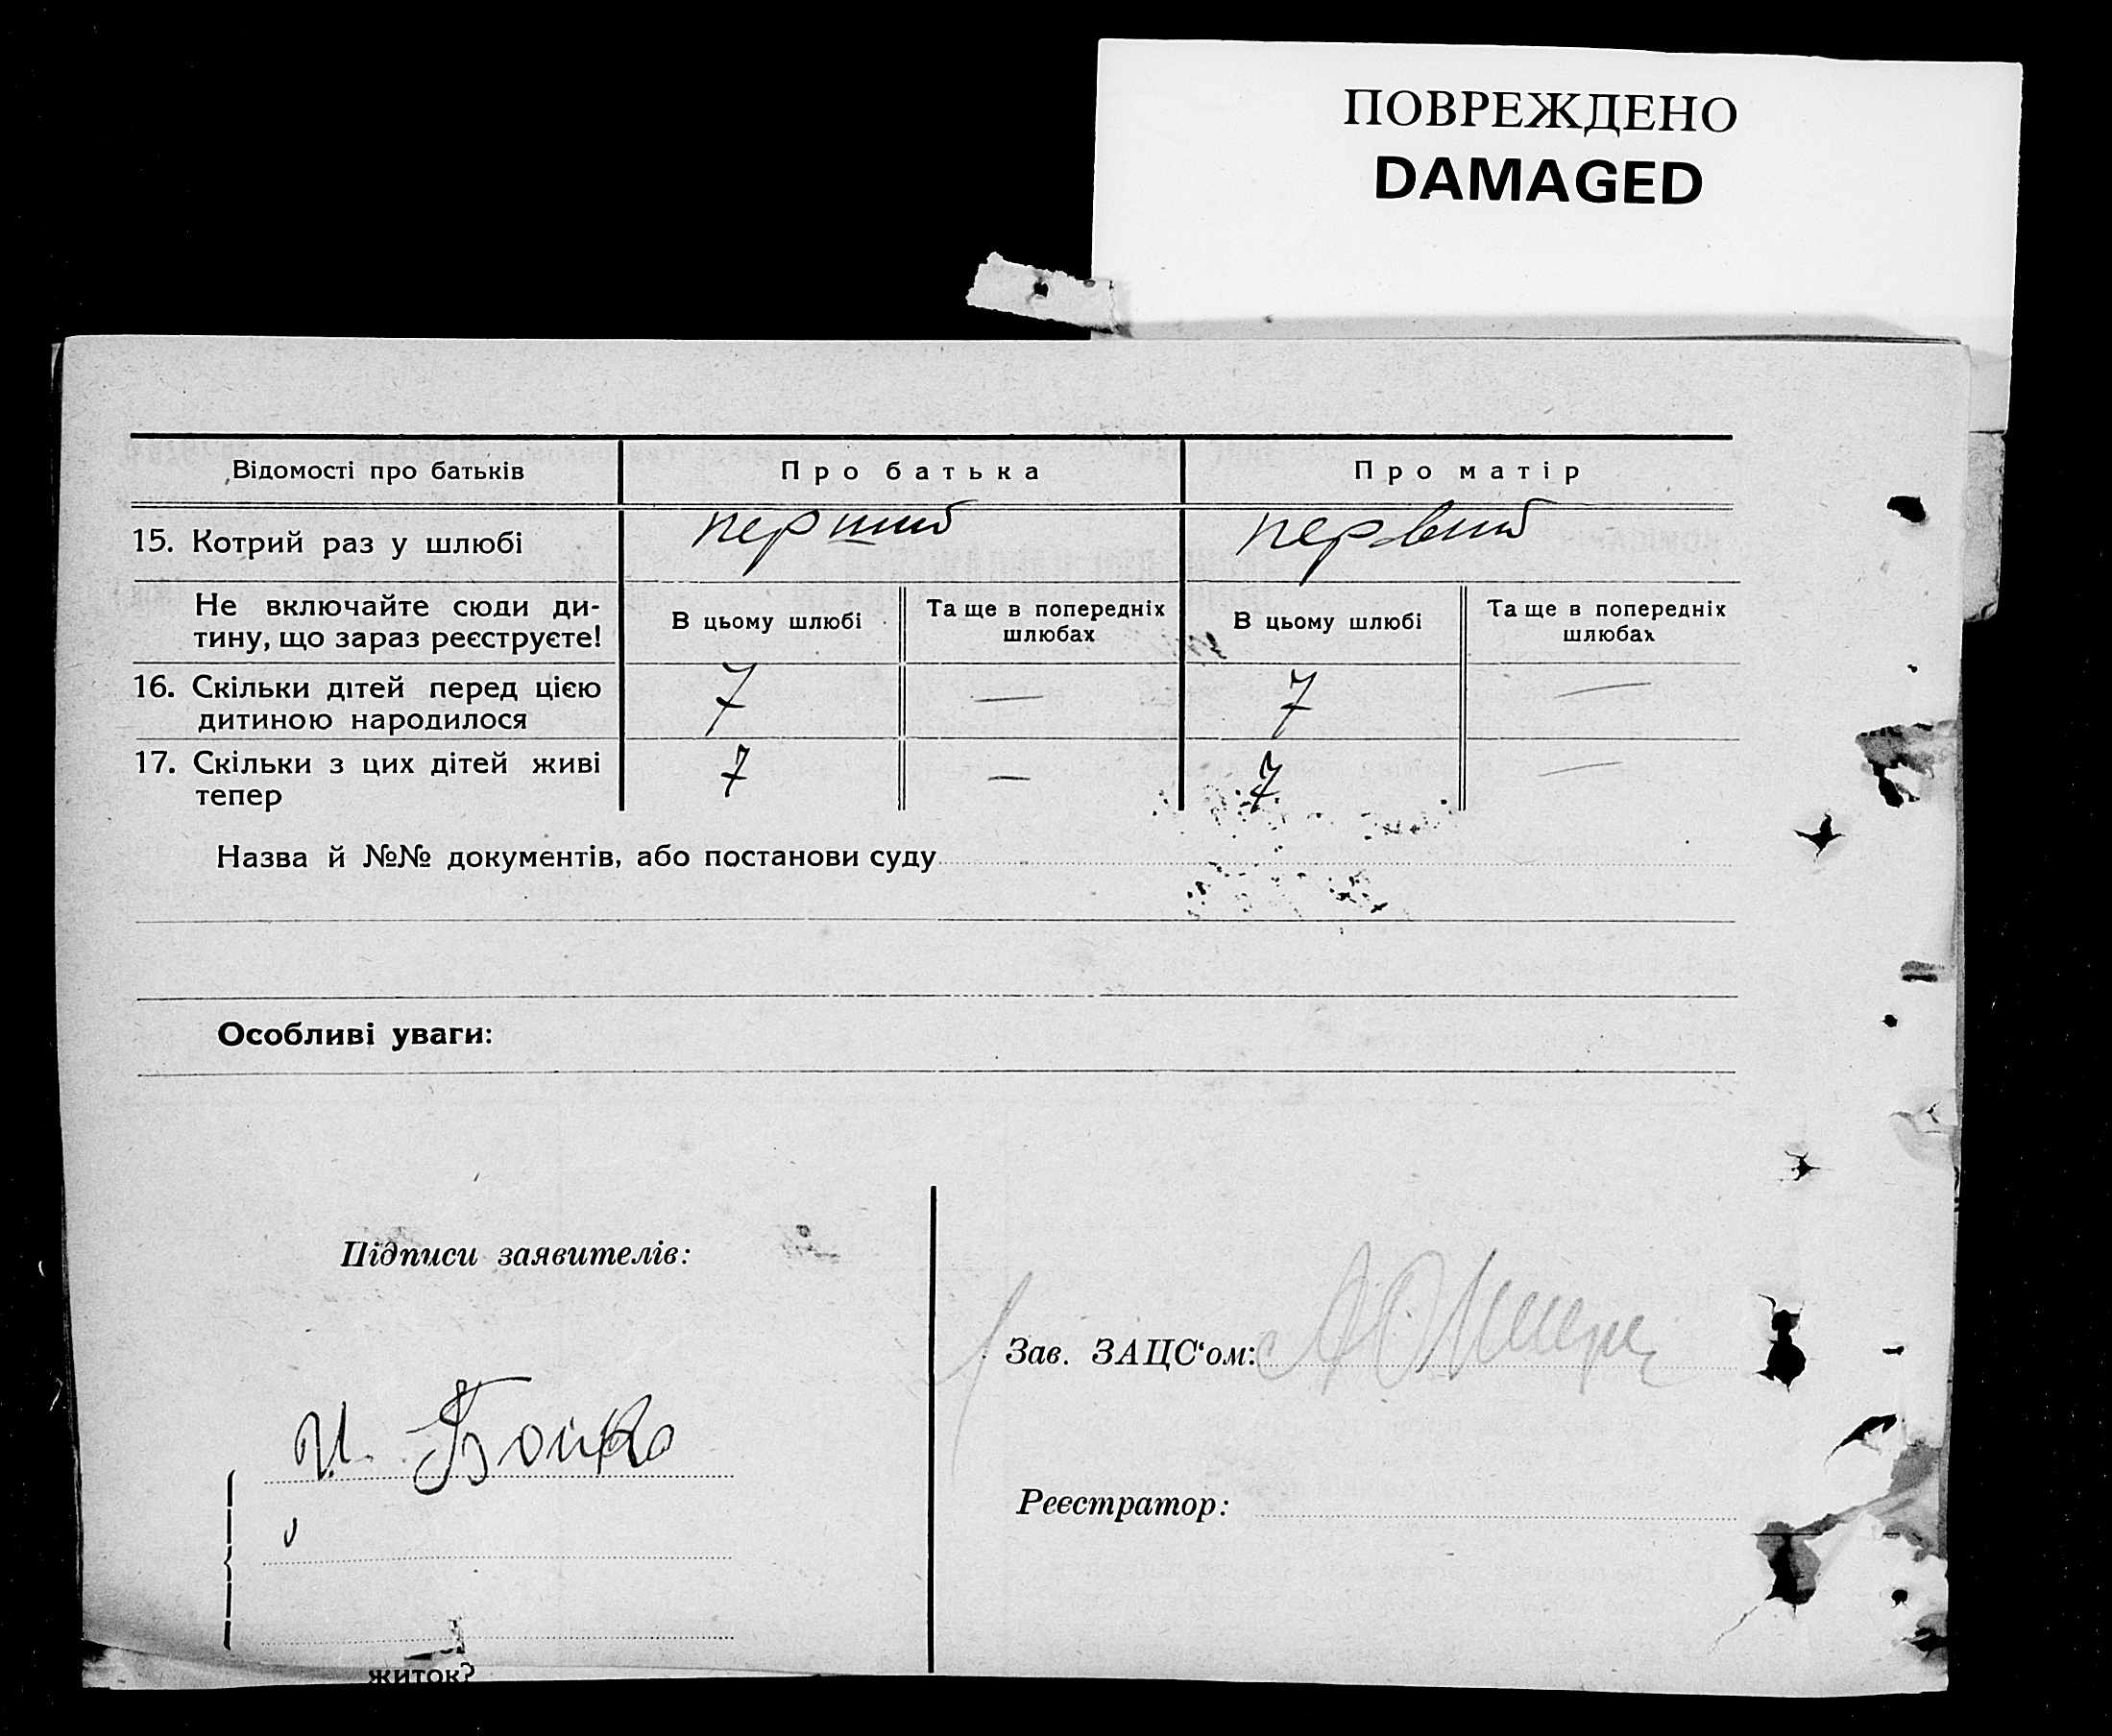 ПОВРЕЖДЕНО
DAMAGED
Відомості про батьків
Про батька
Про матір
15. Котрий раз у шлюбі
перший
первий
Не включайте сюди ди-
тину, що зараз реєструєте!
В цьому шлюбі
Та ще в попередніх
шлюбах
В цьому шлюбі
Та ще в попередніх
шлюбах
16. Скільки дітей перед цією
дитиною народилося
7
—
7
—
17. Скільки з цих дітей живі
тепер
7
—
7
—
Назва й №№ документів, або постанови суду
Особливі уваги:
Підписи заявителів:
Зав. ЗАЦС‘ом:
И. Бойко
Реєстратор:
житок?